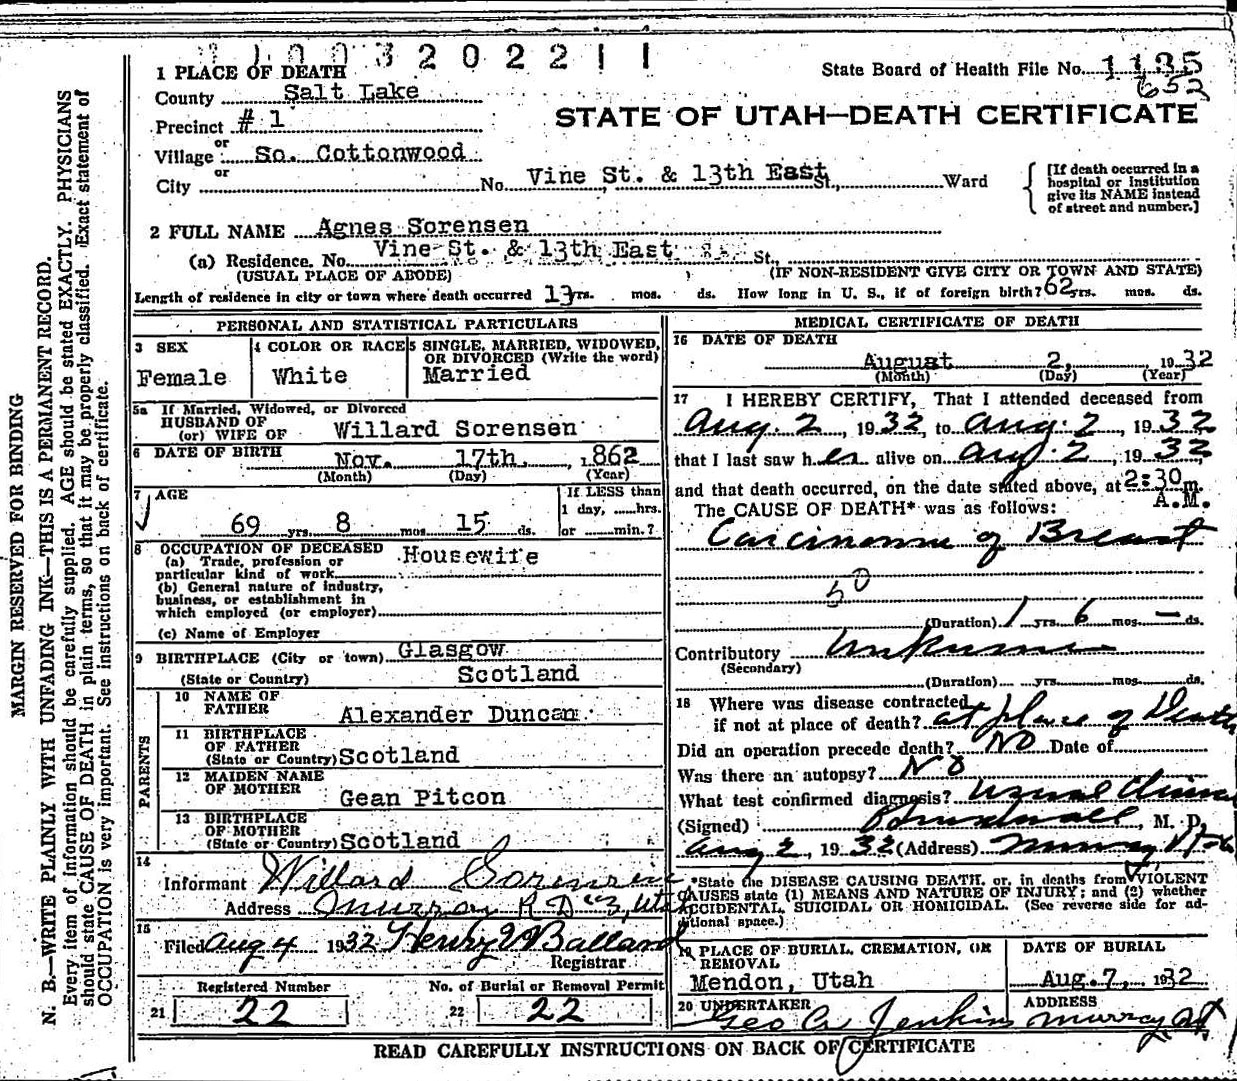 1003202211
1 PLACE OF DEATH
State Board of Health File No. 1135
652
County Salt Lake
Precinct #1
STATE OF UTAH—DEATH CERTIFICATE
or
Village So. Cottonwood
or
City No. Vine St. & 13th East St., Ward
[If death occurred in a
hospital or institution
give its NAME instead
of street and number.]
2 FULL NAME Agnes Sorensen
(a) Residence. No. Vine St. & 13th East St.,
(USUAL PLACE OF ABODE) (IF NON-RESIDENT GIVE CITY OR TOWN AND STATE)
Length of residence in city or town where death occurred 13 yrs. mos. ds. How long in U. S., if of foreign birth? 62 yrs. mos. ds.
PERSONAL AND STATISTICAL PARTICULARS
3 SEX
Female
4 COLOR OR RACE
White
5 SINGLE, MARRIED, WIDOWED,
OR DIVORCED (Write the word)
Married
5a If Married, Widowed, or Divorced
HUSBAND OF
(or) WIFE OF Willard Sorensen
6 DATE OF BIRTH Nov. 17th, 1862
(Month) (Day) (Year)
7 AGE
69 yrs. 8 mos. 15 ds.
If LESS than
1 day, hrs.
or min.?
8 OCCUPATION OF DECEASED
(a) Trade, profession or
particular kind of work Housewife
(b) General nature of industry,
business, or establishment in
which employed (or employer)
(c) Name of Employer
9 BIRTHPLACE (City or town) Glasgow
(State or Country) Scotland
PARENTS
10 NAME OF
FATHER Alexander Duncan
11 BIRTHPLACE
OF FATHER
(State or Country) Scotland
12 MAIDEN NAME
OF MOTHER Gean Pitcon
13 BIRTHPLACE
OF MOTHER
(State or Country) Scotland
14
Informant Willard Sorensen
Address Murray R D #3, Utah
15
Filed Aug 4 1932 Henry Ballard
Registrar
Registered Number
21 22
No. of Burial or Removal Permit
22 22
MEDICAL CERTIFICATE OF DEATH
16 DATE OF DEATH
August 2, 1932
(Month) (Day) (Year)
17 I HEREBY CERTIFY, That I attended deceased from
Aug. 2, 1932, to Aug. 2, 1932
that I last saw her alive on Aug. 2, 1932,
and that death occurred, on the date stated above, at 2:30 m.
A.M.
The CAUSE OF DEATH* was as follows:
Carcinoma of Breast
50
(Duration) 1 yrs. 6 mos. — ds.
Contributory Unknown
(Secondary)
(Duration) yrs. mos. ds.
18 Where was disease contracted
if not at place of death? at place of Death
Did an operation precede death? No Date of
Was there an autopsy? No
What test confirmed diagnosis? Usual Clinical
(Signed) , M. D.
Aug 2, 1932 (Address) Murray Utah
*State the DISEASE CAUSING DEATH, or, in deaths from VIOLENT
CAUSES state (1) MEANS AND NATURE OF INJURY; and (2) whether
ACCIDENTAL, SUICIDAL OR HOMICIDAL. (See reverse side for ad-
ditional space.)
19 PLACE OF BURIAL, CREMATION, OR
REMOVAL
Mendon, Utah
DATE OF BURIAL
Aug. 7, 1932
20 UNDERTAKER
Geo A Jenkins
ADDRESS
Murray Ut
READ CAREFULLY INSTRUCTIONS ON BACK OF CERTIFICATE
MARGIN RESERVED FOR BINDING
N. B.—WRITE PLAINLY WITH UNFADING INK—THIS IS A PERMANENT RECORD.
Every item of information should be carefully supplied. AGE should be stated EXACTLY. PHYSICIANS
should state CAUSE OF DEATH in plain terms, so that it may be properly classified. Exact statement of
OCCUPATION is very important. See instructions on back of certificate.